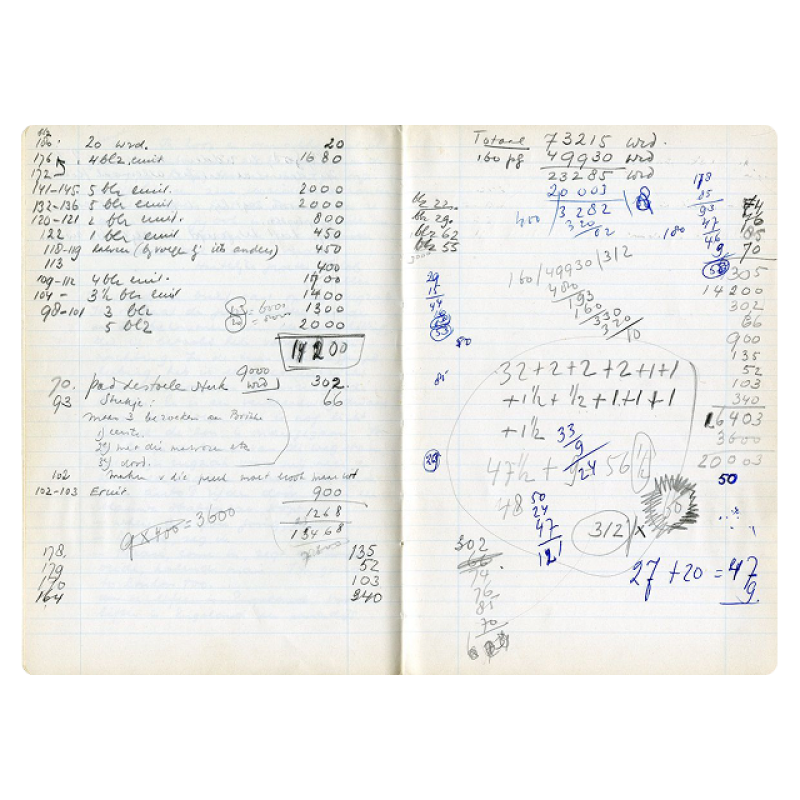 blz
180. 20 wrd. 20
176 4 blz. eruit 1680
172
141-145. 5 blz eruit. 2000
132-136 5 blz eruit. 2000
120-121 2 blz eruit. 800
122 1 blz eruit 450
118-119 (bijvoegen bij iets anders) 450
113 400
109-112 4 blz eruit.
104 - 3½ blz eruit 1400
98-101 3 blz 1300
5 blz 2000
14200
9000
wrd
70. paddestoele 302
93 Stukje: 66
1) eerste
3) dood.
102 maken v die
102-103 Eruit 900
1268
15468
9 x 400 = 3600
178. 135
179 52
170 103
164 340
Totaal 73215 wrd.
160 pg 49930 wrd
23285 wrd
20003
400 / 3282 / 8
320
82
180
blz 22.
blz 29.
blz 62
blz 55
178
85
93
47
46
9
74
76
85
70
305
14200
302
66
900
135
52
103
340
16403
3600
20003
50
29
15
44
53
80
85
29
160/49930/312
480
193
160
330
320
10
32+2+2+2+1+1
+1½+½+1+1+1
+1½
33
9
24
47½ + 9 56½
48
50
24
47
121
312 x
50
302
66
74
76
85
70
27 + 20 = 47
9.